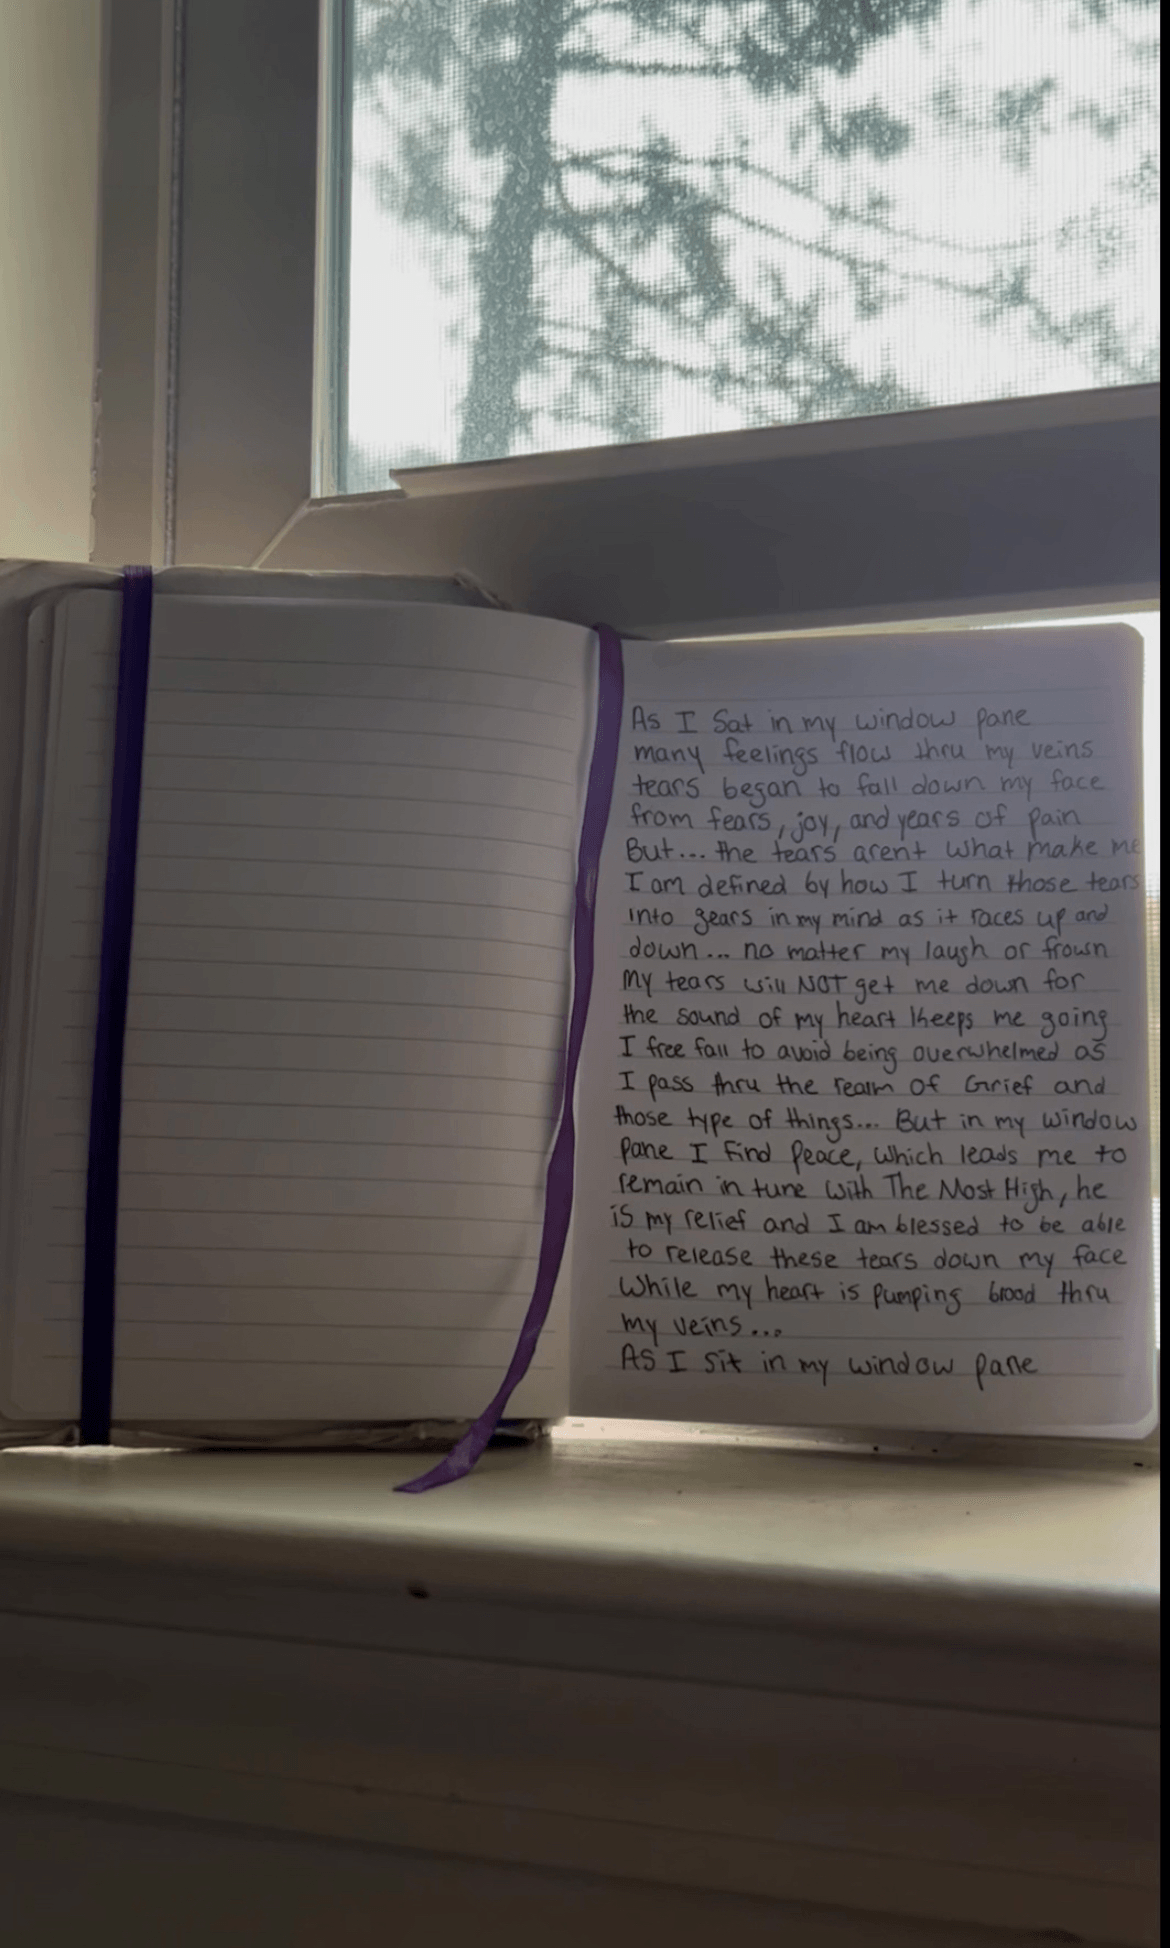 As I Sat in my window pane
many feelings flow thru my veins
tears began to fall down my face
from fears, joy, and years of pain
But... the tears arent what make me
I am defined by how I turn those tears
into gears in my mind as it races up and
down... no matter my laugh or frown
My tears will NOT get me down for
the sound of my heart keeps me going
I free fall to avoid being overwhelmed as
I pass thru the realm of Grief and
those type of things... But in my window
pane I find Peace, which leads me to
remain in tune with The Most High, he
is my relief and I am blessed to be able
to release these tears down my face
While my heart is pumping blood thru
my veins...
As I sit in my window pane